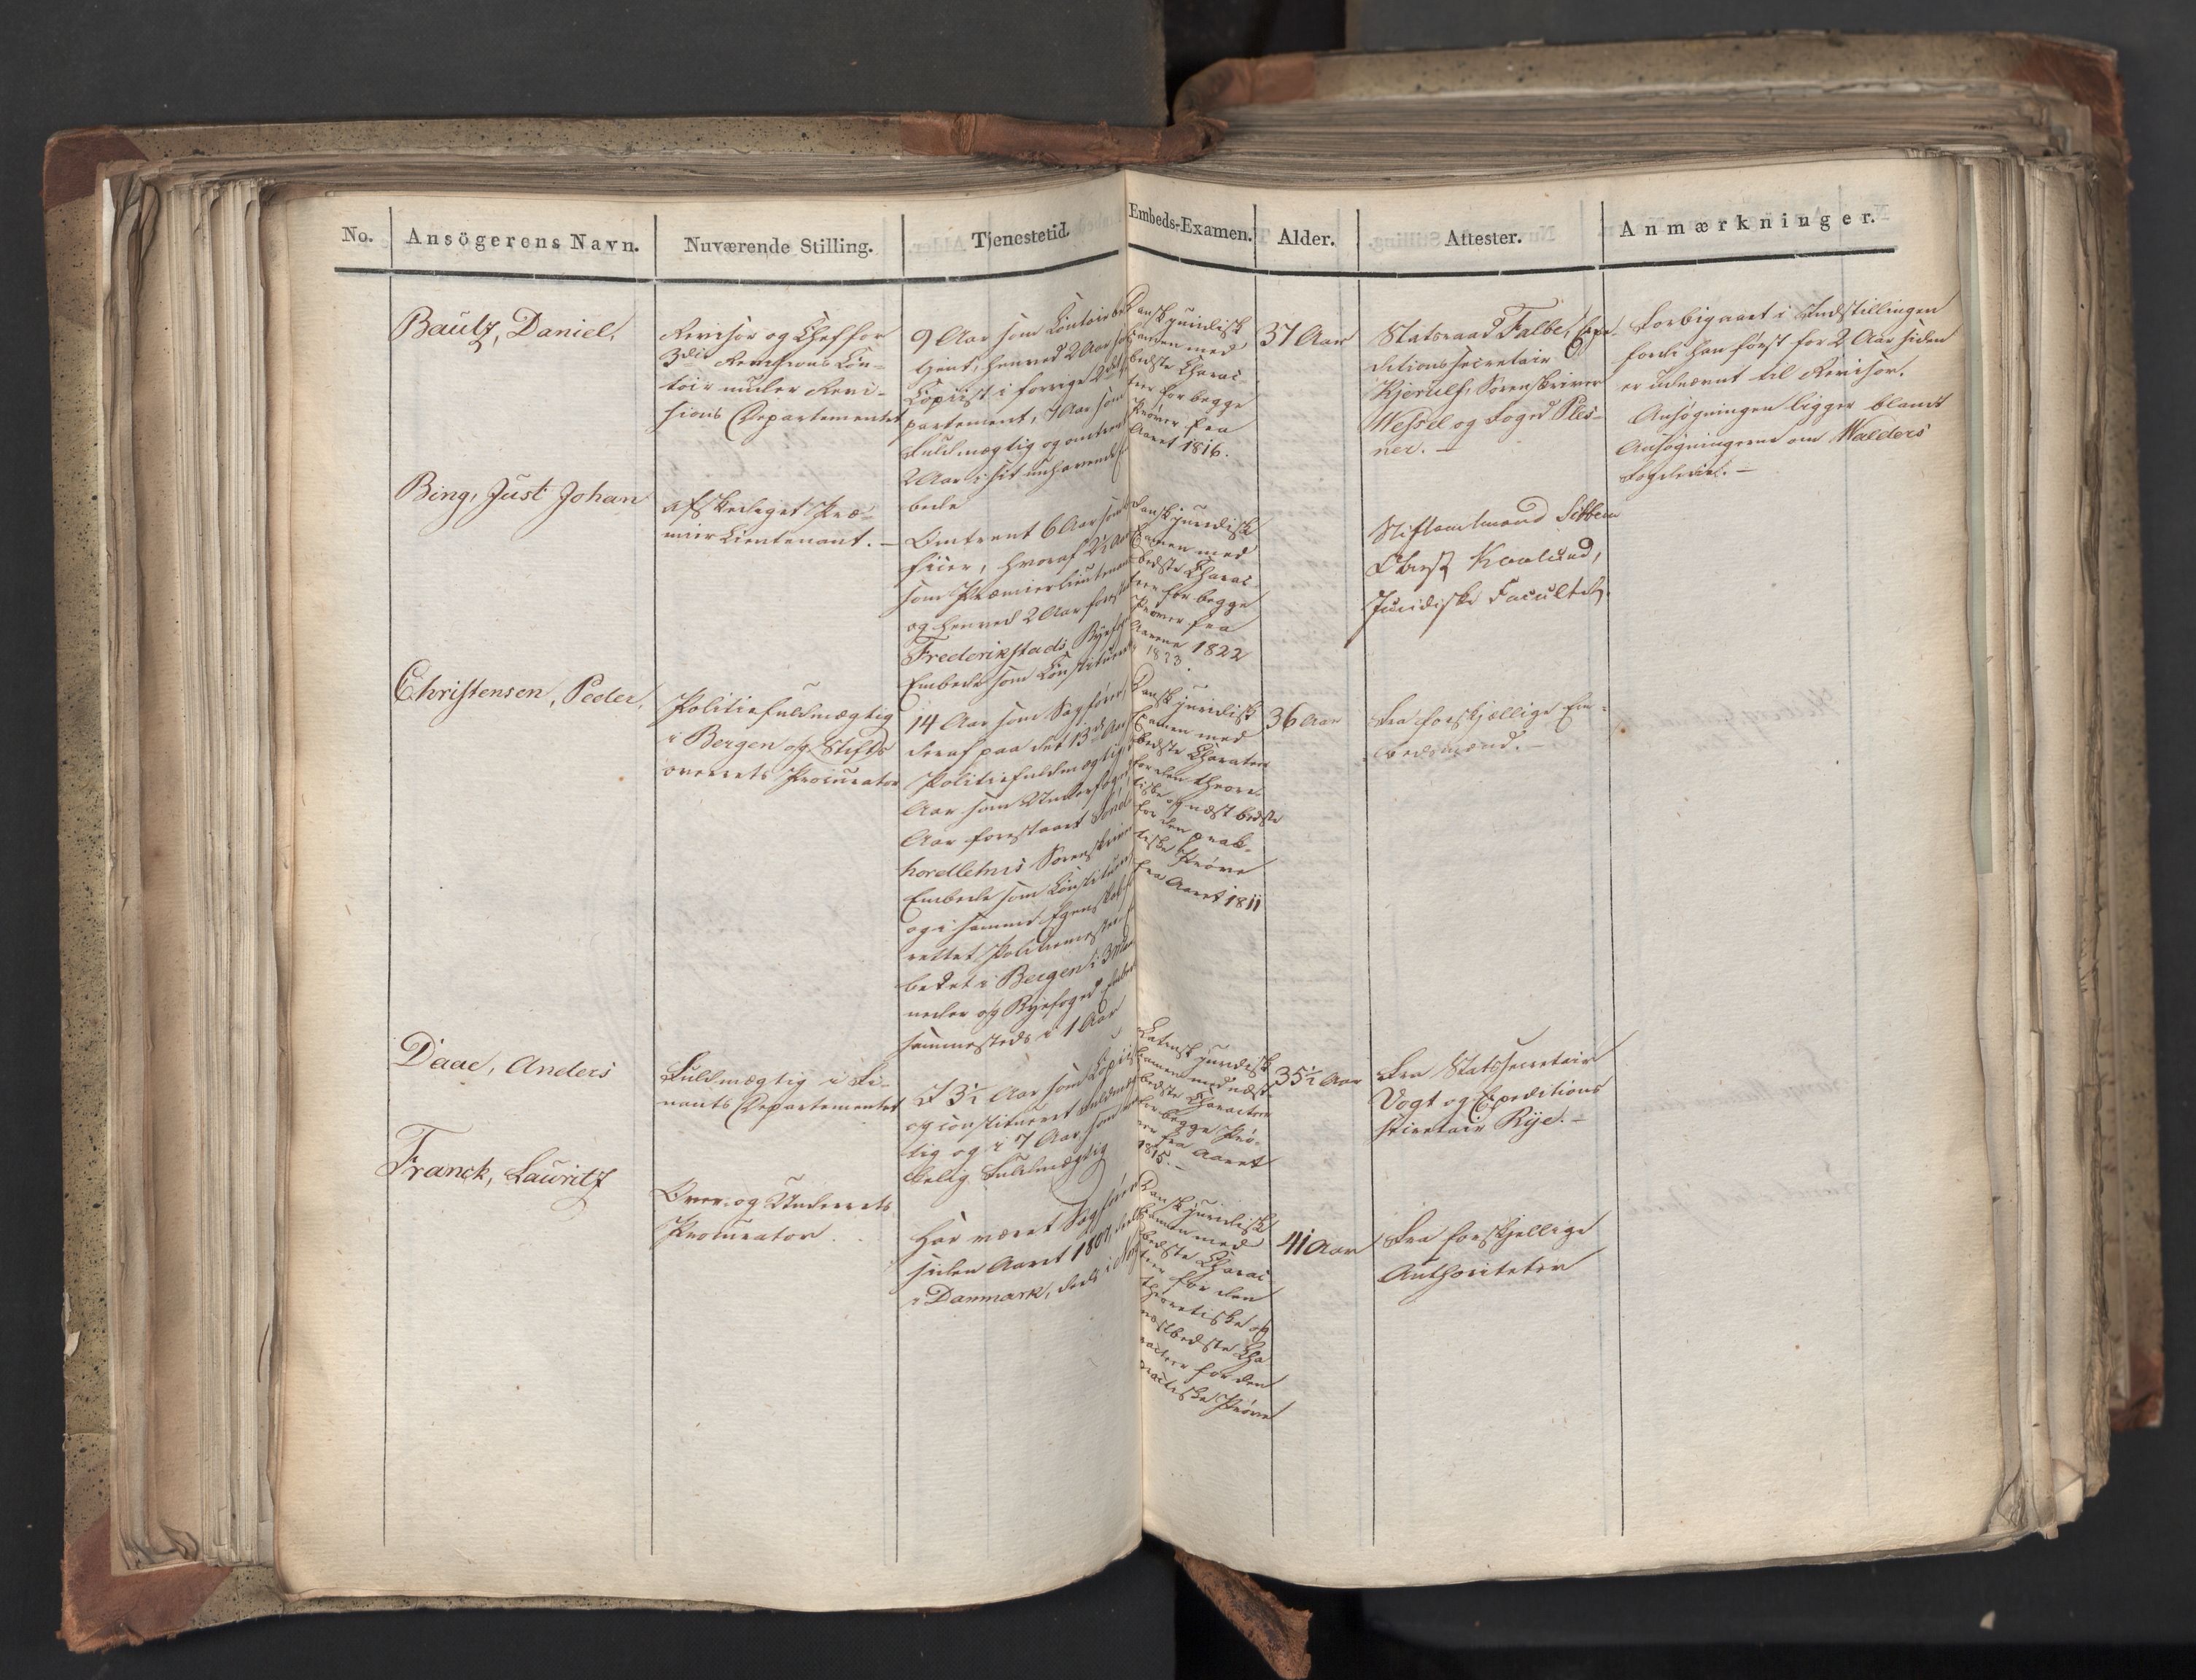 No.
Ansögerens Navn.
Nuværende Stilling.
Tjenestetid.
Embeds-Examen.
Alder.
Attester.
Anmærkninger.
Bautz, Daniel,
Revisor og Chef for
3die Revisions Con-
toir under Revi-
sions Departementet
9 Aar som Contoirbe-
tjent, henved 2 Aar som
Copiist i forrige 2det
partement, 7 Aar som
Fuldmægtig og omtrent
2 Aar i sit nuhavende
bede
Dansk juridisk
Examen med
bedste Charac-
teer for begge
Prøver fra
Aaret 1816.
37 Aar
Statsraad Falbe, Expe-
ditionssecretair
Kjerulf, Sorenskriver
Wessel og Foged Ples-
ner. —
Forbigaaet i Indstillingen
fordi han først for 2 Aar siden
er udnævnt til Revisor.
Ansøgningen ligger blandt
Ansøgningerne om Walders
Fogderie. —
Bing, Just Johan
afskediget Præ-
mier Lieutenant. —
Omtrent 6 Aar som
ficier, hvoraf 2½ Aar
som Præmierlieutenant
og henved 2 Aar forestaaet
Frederikstads Byfoged
Embede som Constitueret
Dansk juridisk
Examen med
bedste Charac-
teer for begge
Prøver fra
Aarene 1822
1823.
Stiftamtmand Sibbern
Oberst Kaalund,
Juridiske Facultet.
Christensen, Peder,
Politiefuldmægtig
i Bergen og Stifts
overrets Procurator
14 Aar som Sagfører,
deraf paa det 13de Aar
Politiefuldmægtig,
Aar som Underfoged
Aar forestaaet Sønd-
hordlehns Sorenskriver
Embede som Constitueret
og i samme Egenskab
rettet Politiemester
bedet i Bergen i 3 Maa-
neder og Byefoged Embedet
sammesteds i 1 Aar
Dansk juridisk
Examen med
bedste Characteer
for den theore-
tiske og næst bedste
for den prak-
tiske Prøve
fra Aaret 1811
36 Aar
Fra forskjellige Em-
bedsmænd. —
Daae, Anders
Fuldmægtig i Fi-
nants Departementet
I 3½ Aar som Copiist
og constitueret Fuldmæg-
tig og i 7 Aar som
kelig Fuldmægtig
Latinsk juridisk
Examen med næst-
bedste Characteer
for begge Prø-
ver fra Aaret
1815. —
35½ Aar
Fra Statssecretair
Vogt og Expeditions
secretair Rye. —
Franck, Lauritz
Over og Underrets
Procurator.
Har været Sagfører
siden Aaret 1807, deels
i Danmark, deels i
Dansk juridisk
Examen med
bedste Charac-
teer for den
theoretiske og
næstbedste Cha
racteer for den
practiske Prøve
41 Aar
Fra forskjellige
Authoriteter